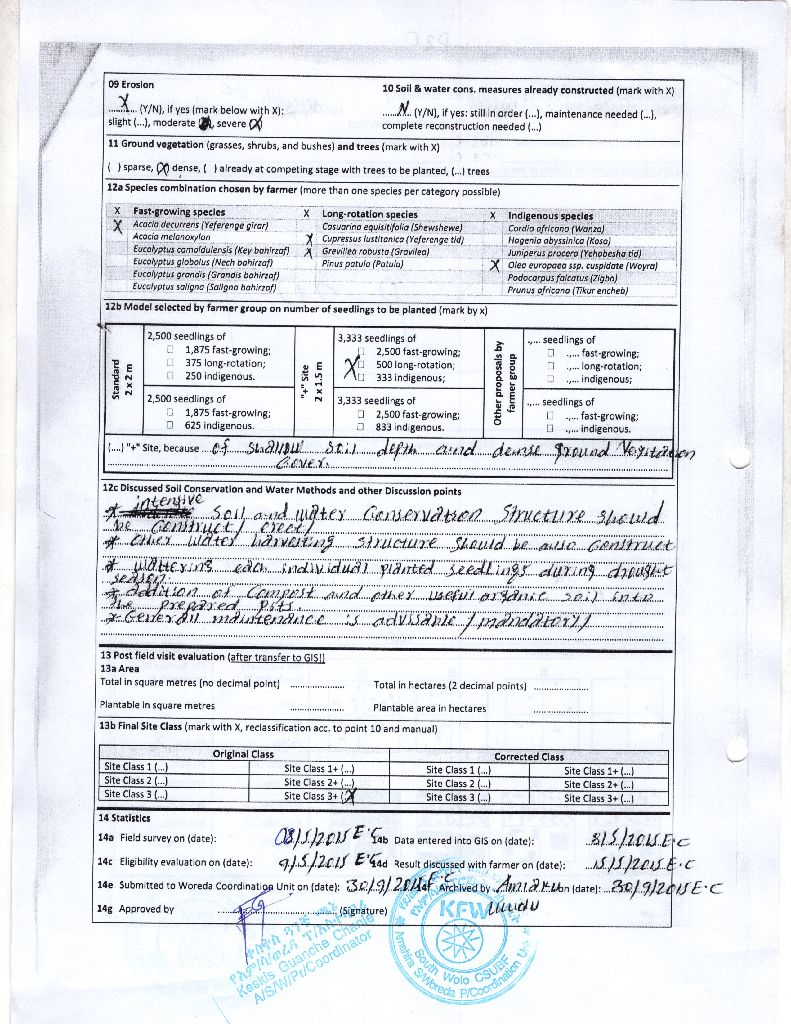 09 Erosion
X (Y/N), if yes (mark below with X):
slight (...), moderate severe (X)
10 Soil & water cons. measures already constructed (mark with X)
N (Y/N), if yes: still in order (...), maintenance needed (...),
complete reconstruction needed (...)
11 Ground vegetation (grasses, shrubs, and bushes) and trees (mark with X)
( ) sparse, (X) dense, ( ) already at competing stage with trees to be planted, (...) trees
12a Species combination chosen by farmer (more than one species per category possible)
X Fast-growing species
X Acacia decurrens (Yeferenge girar)
Acacia melanoxylon
Eucalyptus camaldulensis (Key bahirzaf)
Eucalyptus globolus (Nech bahirzaf)
Eucalyptus grandis (Grandis bahirzaf)
Eucalyptus saligna (Saligna bahirzaf)
X Long-rotation species
Casuarina equisitifolia (Shewshewe)
X Cupressus lusitanica (Yeferenge tid)
X Grevillea robusta (Gravilea)
Pinus patula (Patula)
X Indigenous species
Cordia africana (Wanza)
Hagenia abyssinica (Koso)
Juniperus procera (Yehabesha tid)
X Olea europaea ssp. cuspidate (Woyra)
Podocarpus falcatus (Zigba)
Prunus africana (Tikur encheb)
12b Model selected by farmer group on number of seedlings to be planted (mark by x)
Standard
2 x 2 m
2,500 seedlings of
1,875 fast-growing;
375 long-rotation;
250 indigenous.
2,500 seedlings of
1,875 fast-growing;
625 indigenous.
"+" Site
2 x 1.5 m
3,333 seedlings of
2,500 fast-growing;
X 500 long-rotation;
333 indigenous;
3,333 seedlings of
2,500 fast-growing;
833 indigenous.
Other proposals by
farmer group
.,... seedlings of
.,... fast-growing;
.,... long-rotation;
.,... indigenous;
.,... seedlings of
.,... fast-growing;
.,... indigenous.
(....) "+" Site, because of shallow soil depth and dense ground Vegetation
Cover.
12c Discussed Soil Conservation and Water Methods and other Discussion points
* intensive Soil and water Conservation Structure should
be Construct/ erect/
* other water harvesting structure should be also Construct
* wattering each individual planted seedlings during drought
season.
* addition of Compost and other useful organic soil into
the prepared pits.
* General maintenance is advisable /mandatory/
13 Post field visit evaluation (after transfer to GIS!)
13a Area
Total in square metres (no decimal point) ................... Total in hectares (2 decimal points) ...................
Plantable in square metres ................... Plantable area in hectares ...................
13b Final Site Class (mark with X, reclassification acc. to point 10 and manual)
Original Class Corrected Class
Site Class 1 (...) Site Class 1+ (...) Site Class 1 (...) Site Class 1+ (...)
Site Class 2 (...) Site Class 2+ (...) Site Class 2 (...) Site Class 2+ (...)
Site Class 3 (...) Site Class 3+ (X) Site Class 3 (...) Site Class 3+ (...)
14 Statistics
14a Field survey on (date): 08/5/2015 E.C 14b Data entered into GIS on (date): 8/5/2015 E.C
14c Eligibility evaluation on (date): 9/5/2015 E.C 14d Result discussed with farmer on (date): 15/5/2015 E.C
14e Submitted to Woreda Coordination Unit on (date): 30/9/2015 E.C Archived by on (date): 30/9/2015 E.C
14g Approved by (Signature)
Kesis Guanche Chanie
A/S/W/Pr/Coordinator
KFW
South Wolo CSUBF
Amhara S/Woreda P/Coordination Unit